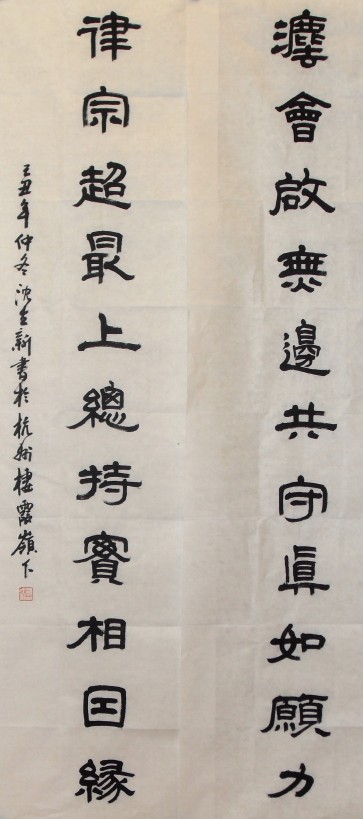 灋會啟無邊共守眞如願力
律宗超最上總持實相囙緣
己丑年仲冬沈立新書於杭州棲霞嶺下